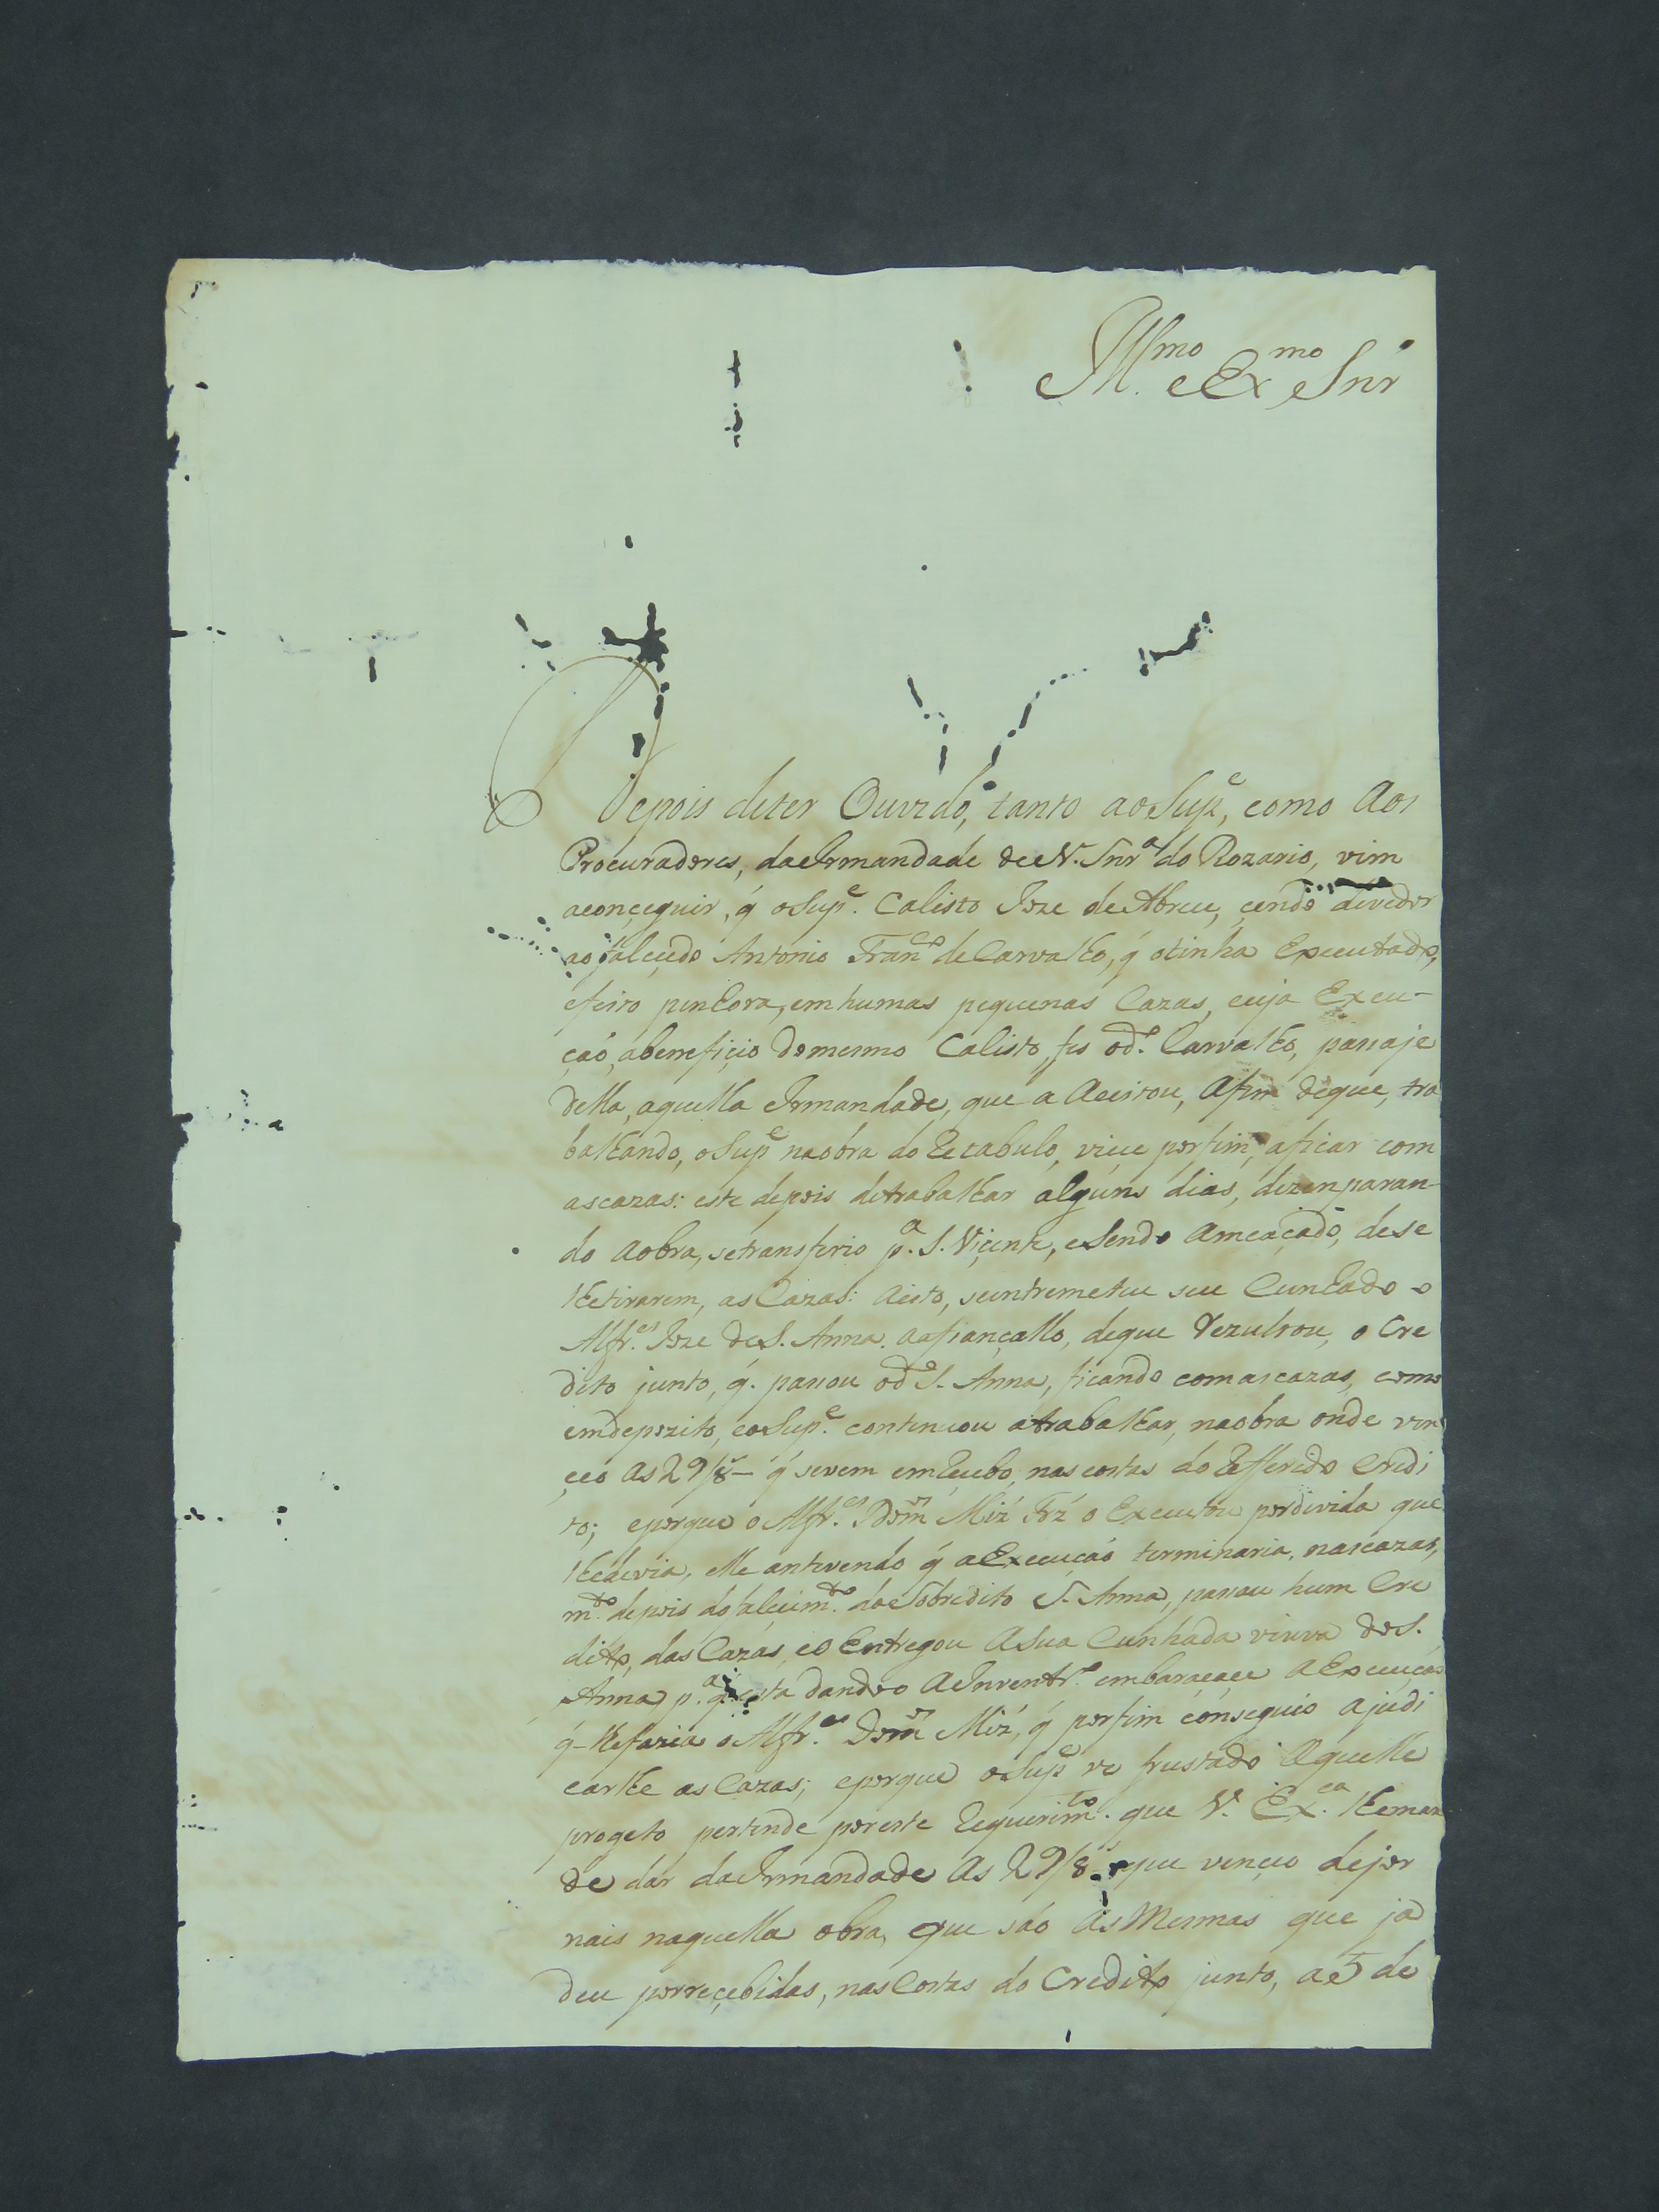 Illmo. e Exmo Snr
Depois deter Ouvido, tanto ao Supe, como Aos
Procuradores, da Irmandade de N. Snra do Rozario, vim
aconçeguir, q̃ o Supe. Calisto Joze de Abreu, çendo devedor
ao falecido Antonio Franco de Carvalho, q̃ otinha Executado,
efeito penhora, em humas pequenas Cazas, cuja Execu-
çaõ, abenefiçio domesmo Calisto, fes odo. Carvalho, passaje
della, aquella Irmandade, que a Aceitou, Afim deque, tra
balhando, o Supe naobra do Retabulo, viçe porfim, aficar com
ascazas: este depois detrabalhar alguns dias, dezenparan-
do aobra, setransferio pa. S. Viçente, eSendo Ameaçado, dese
lhetirarem, as Cazas: Aisto, seintremeteu seu Cunhado o
Alfres. Joze de S. Anna. aafiançallo, deque Rezultou, o Cre
dito junto, q̃. passou odo S. Anna, ficando comascazas, como
emdepozito, eoSupe. continuou atrabalhar, naobra onde ven
çeo As 29/8as— q̃ sevem emRecebo, nas costas do Refferido Credi
to; eporque o Alfres. Domos Miz Frz o Executou pordivida que
lhedevia, elle antevendo q̃ aExecuçaõ terminaria, nascazas,
mto. depois dofalecimto. doeSobredito S. Anna, passou hum Cre
dito, das Cazas, eo Entregou ASua Cunhada viuva de S.
Anna pa. q̃ esta dandoo AoInventro. embaraçaçe AExecuçaõ
q̃ lhefazia o Alfres. Domos Miz, q̃ porfim conseguio Ajudi
carlhe as Cazas; eporque oSupe ve frustado Aquelle
progeto pertende poreste Requerimto. que V. Exca. lheman
de dar daIrmandade As 29/8as que vençeo dejor
nais naquella obra, eque saõ as Mesmas que ja
deu porreçebidas, nas Costas do Credito junto, ae5 de